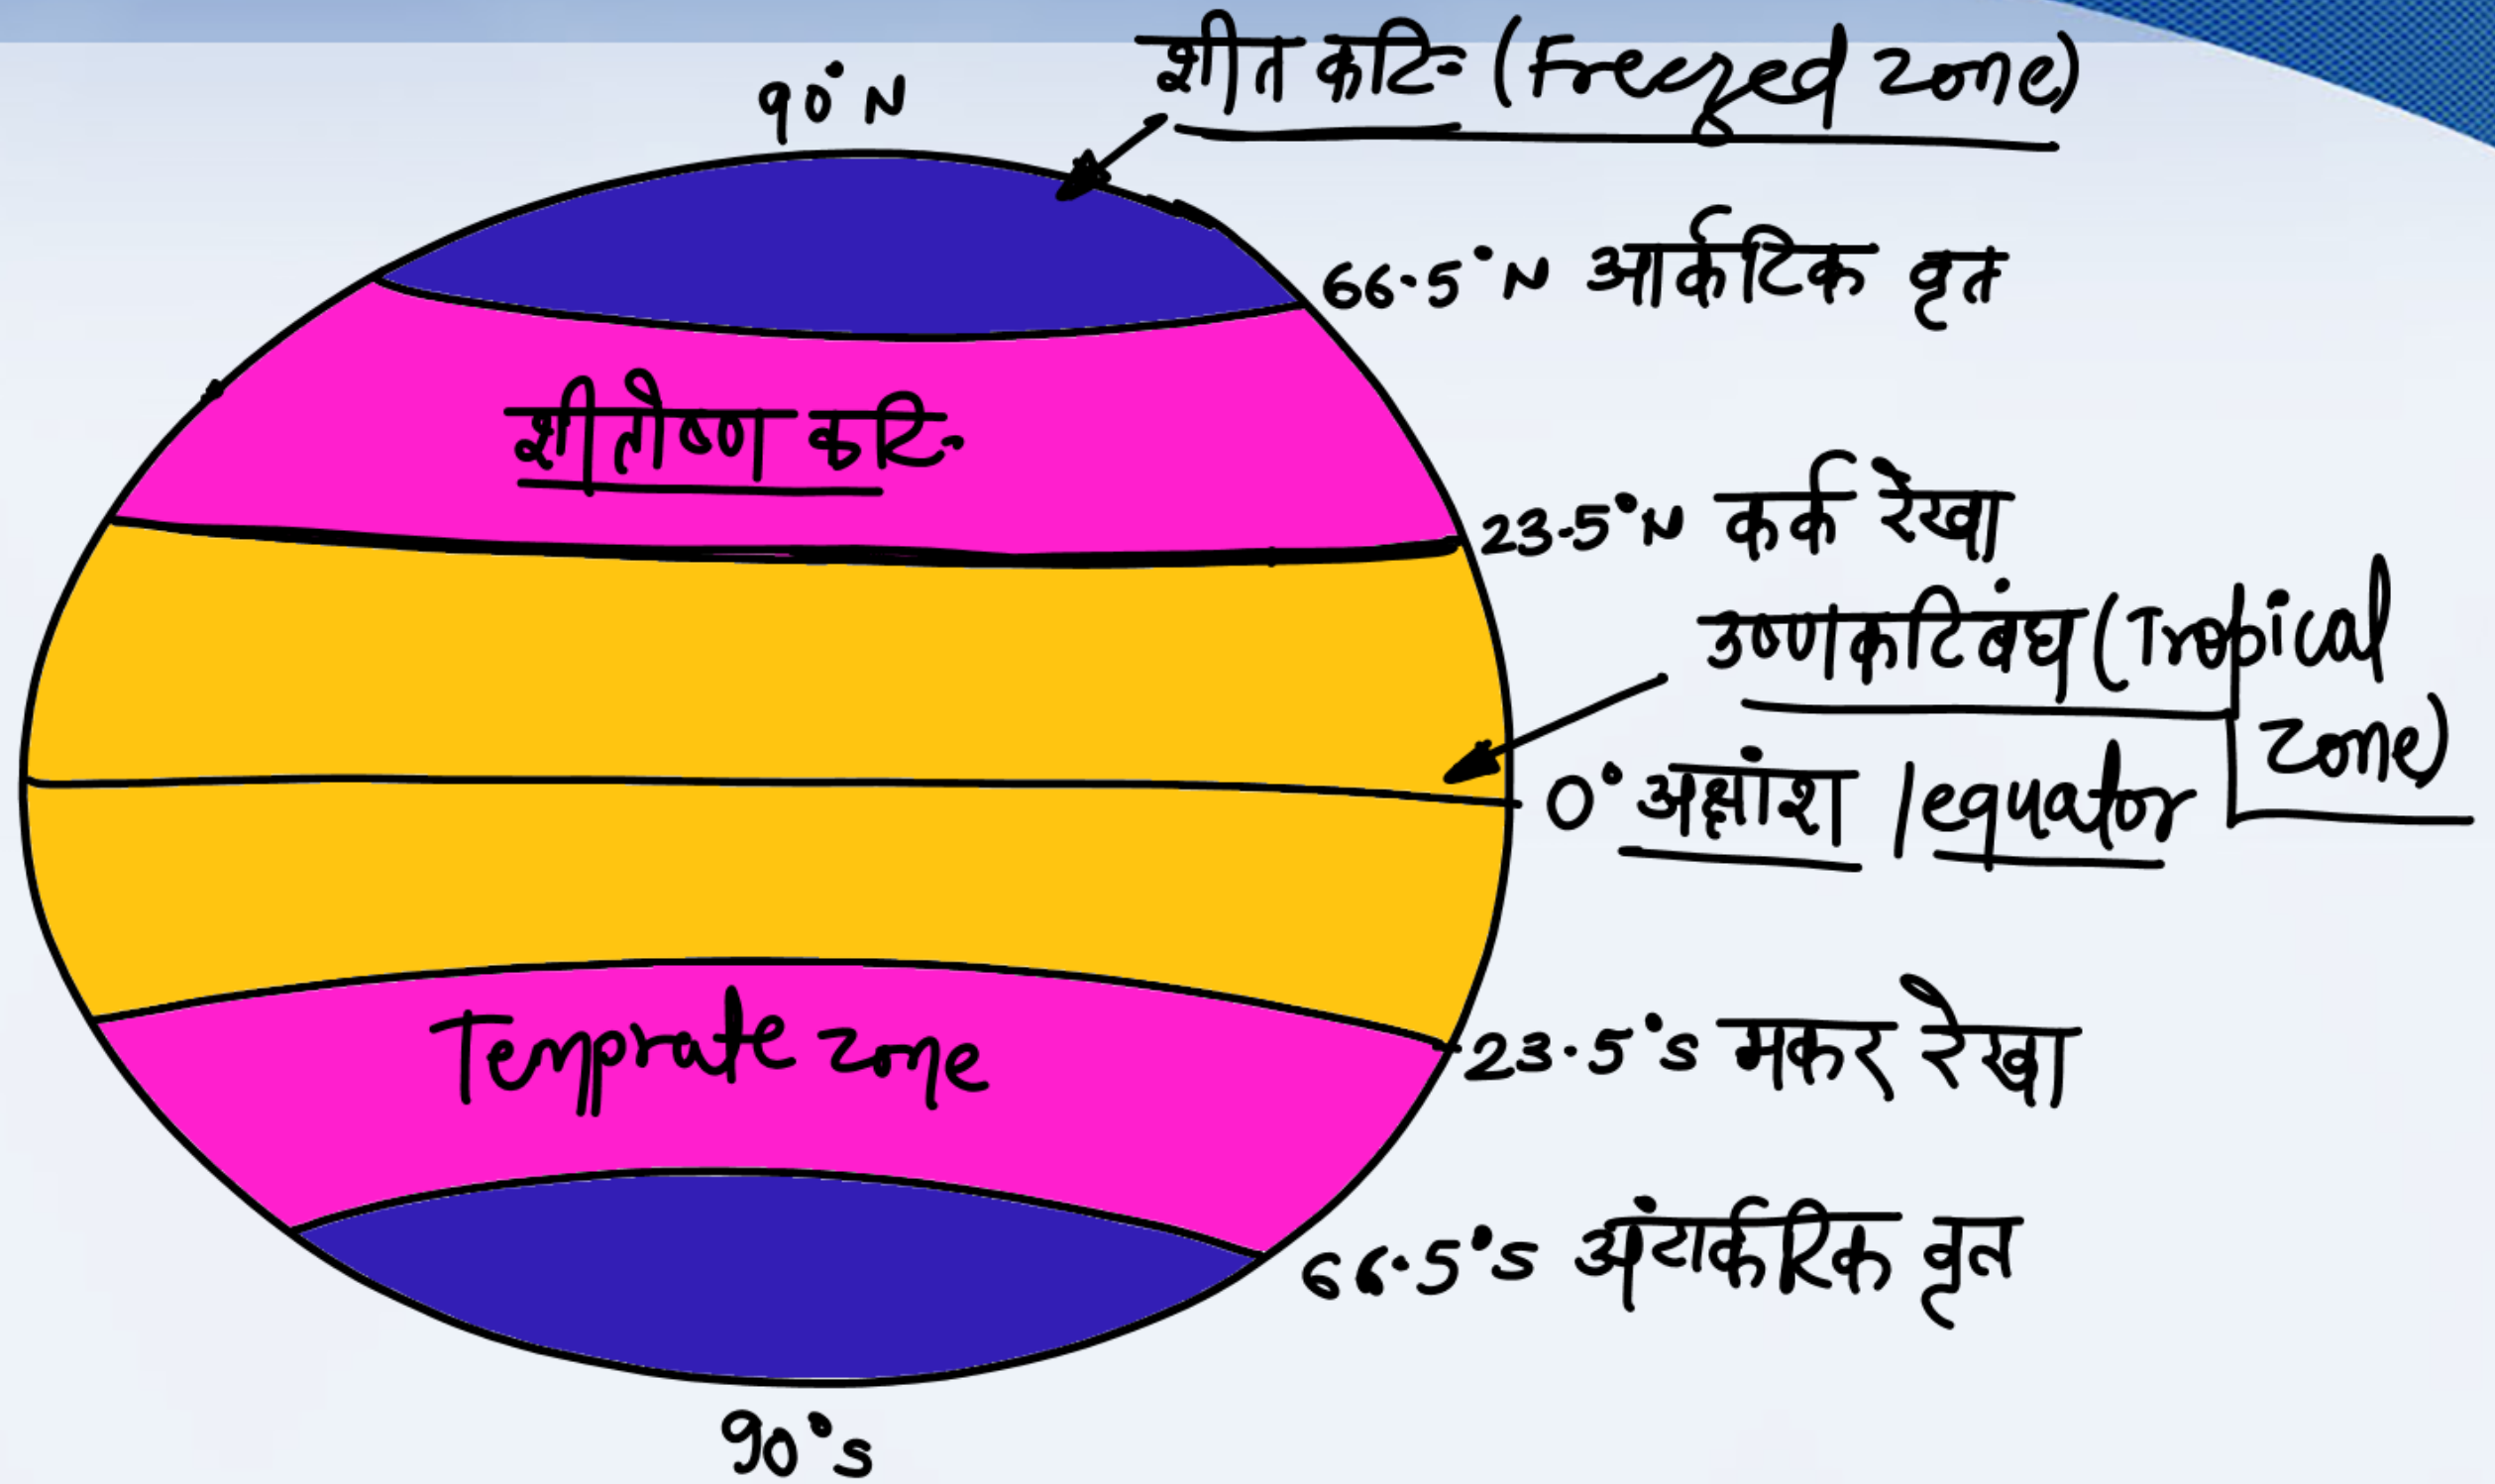 90°N
शीत कटि- (Freezed zone)
66.5°N आर्कटिक वृत
शीतौष्ण कटि-
23.5°N कर्क रेखा
उष्णकटिबंध (Tropical
zone)
0° अक्षांश / equator
Temprate zone
23.5°S मकर रेखा
66.5°S अंटार्कटिक वृत
90°S